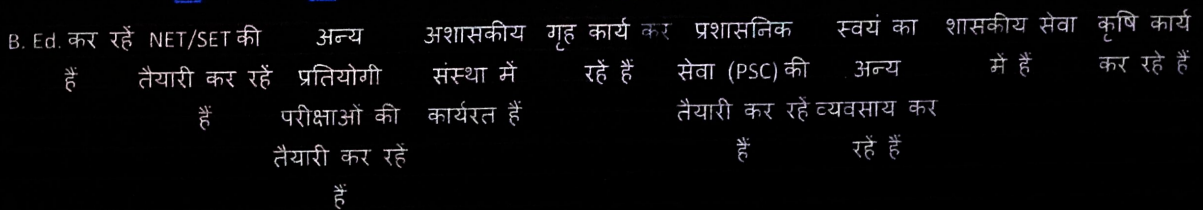 B. Ed. कर रहें हैं
NET/SET की तैयारी कर रहें हैं
अन्य प्रतियोगी परीक्षाओं की तैयारी कर रहें हैं
अशासकीय संस्था में कार्यरत हैं
गृह कार्य कर रहें हैं
प्रशासनिक सेवा (PSC) की तैयारी कर रहें हैं
स्वयं का अन्य व्यवसाय कर रहें हैं
शासकीय सेवा में हैं
कृषि कार्य कर रहे हैं